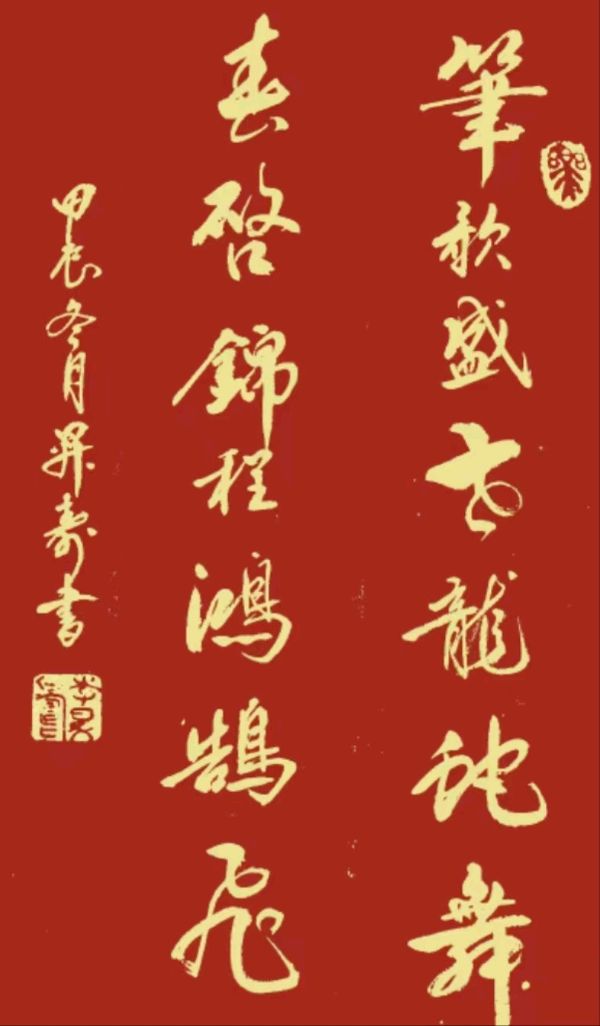 筆歌盛世龍蛇舞
春啓錦程鴻鵠飛
甲辰冬月昇壽書